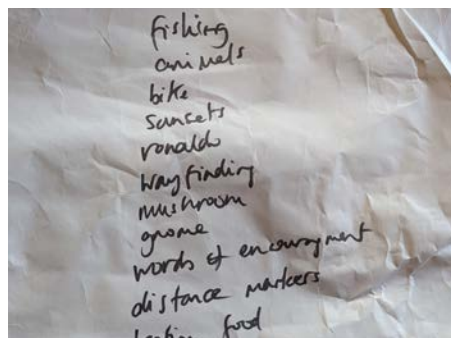 fishing
animals
bike
sunsets
ronaldo
wayfinding
mushroom
gnome
words of encouragment
distance markers
food